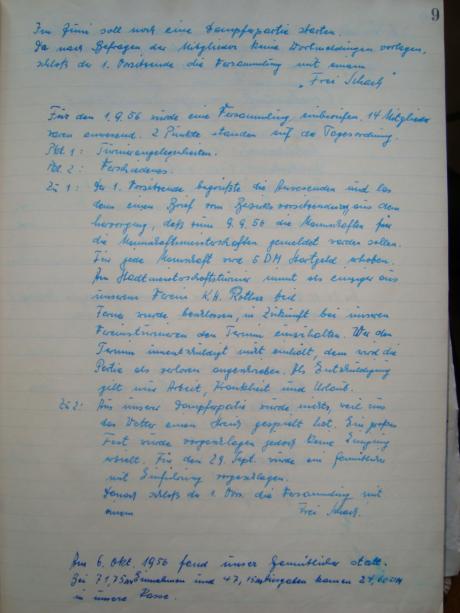 9
Im Juni soll noch eine Dampferpartie starten.
Da nach Befragen der Mitglieder keine Wortmeldungen vorlagen,
schloß der 1. Vorsitzende die Versammlung mit einem
„Frei Schach"
Für den 1.9.56 wurde eine Versammlung einberufen. 14 Mitglieder
waren anwesend. 2 Punkte standen auf der Tagesordnung.
Pkt. 1: Turnierangelegenheiten.
Pkt. 2: Verschiedenes.
Zu 1: Der 1. Vorsitzende begrüßte die Anwesenden und las
dann einen Brief vom Bezirksvorsitzenden aus dem
hervorging, daß zum 9.9.56 die Mannschaften für
die Mannschaftsmeisterschaften gemeldet werden sollen.
Für jede Mannschaft wird 5 DM Startgeld erhoben.
Am Stadtmeisterschaftsturnier nimmt als einziger aus
unserem Verein K.H. teil.
Ferner wurde beschlossen, in Zukunft bei unseren
Vereinsturnieren den Termin einzuhalten. Wer den
Termin unentschuldigt nicht einhält, dem wird die
Partie als verloren angeschrieben. Als Entschuldigung
gilt nur Arbeit, Krankheit und Urlaub.
Zu 2: Aus unserer Dampferpartie wurde nichts, weil uns
das Wetter einen Streich gespielt hat. Ein großes
Fest wurde vorgeschlagen jedoch keine Einigung
erzielt. Für den 29. Sept. wurde ein Gemütlicher
mit Einführung vorgeschlagen.
Danach schloß der 1. Vors. die Versammlung mit
einem Frei Schach.
Am 6. Okt. 1956 fand unser Gemütlicher statt.
Bei 71,75 DM Einnahmen und 47,15 DM Ausgaben kamen 24,60 DM
in unsere Kasse.